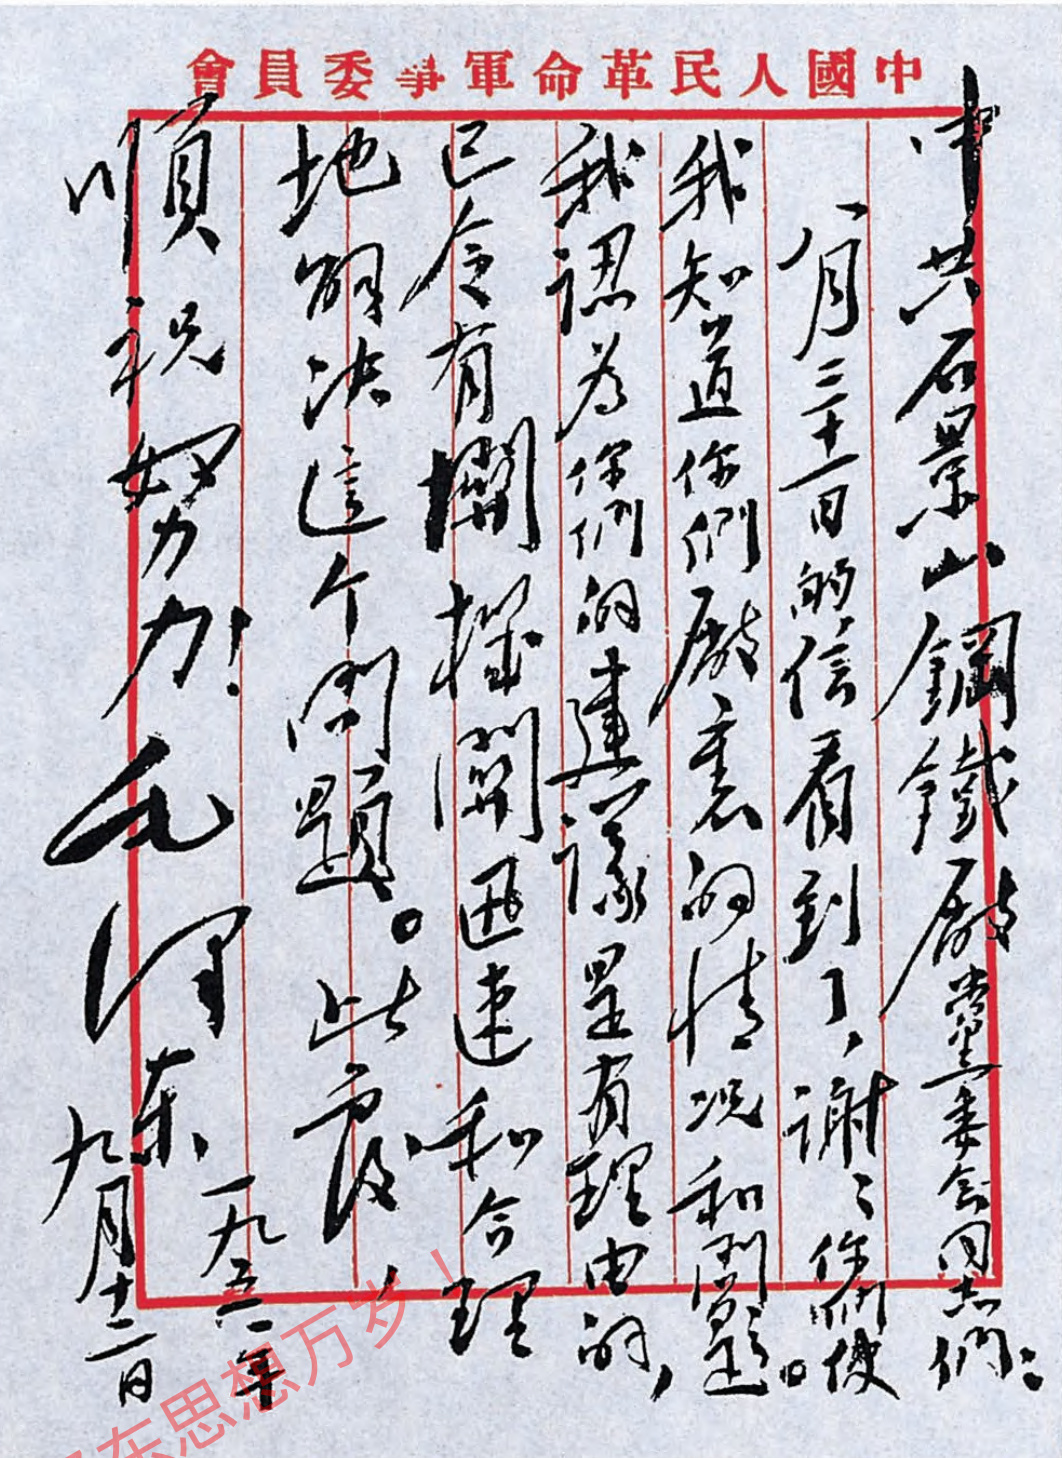 中國人民革命軍事委員會
中共石景山鋼鐵廠黨委会同志們：
八月三十一日的信看到了，謝〻你們使
我知道你們廠裏的情况和問題。
我認為你們的建議是有理由的，
已令有關機關迅速和合理
地解决這个問題。此復，
順祝努力！
毛泽东
一九五一年
九月十二日
东思想万岁！